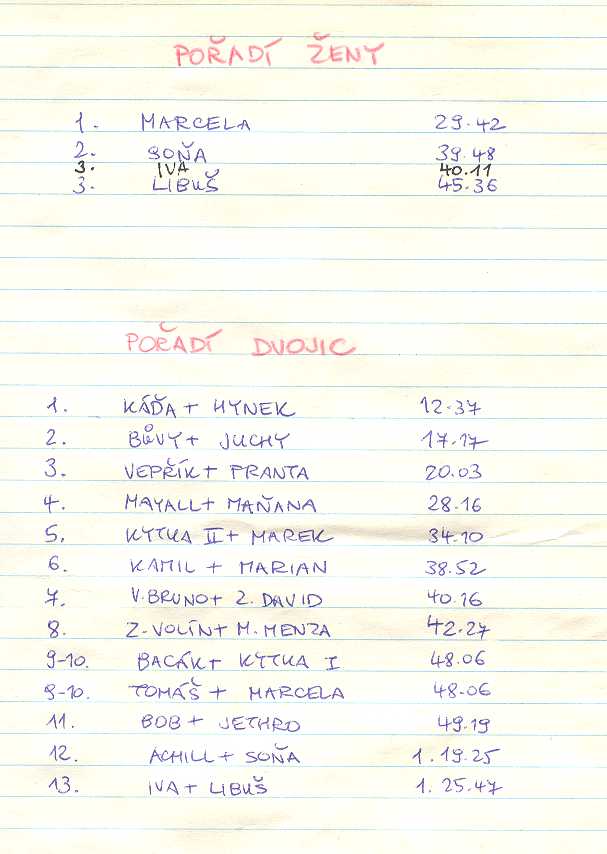 POŘADÍ ŽENY
1. MARCELA 29.42
2. SOŇA 39.48
3. IVA 40.11
3. LIBUŠ 45.36
POŘADÍ DVOJIC
1. KÁĎA + HYNEK 12.37
2. BŮVY + JUCHY 17.17
3. VEPŘÍK + FRANTA 20.03
4. MAYALL + MAŇANA 28.16
5. KYTKA II + MAREK 34.10
6. KAMIL + MARIAN 38.52
7. V. BRUNO + Z. DAVID 40.16
8. Z. VOLÍN + M. MENZA 42.27
9-10. BACÁK + KYTKA I 48.06
9-10. TOMÁŠ + MARCELA 48.06
11. BOB + JETHRO 49.19
12. ACHILL + SOŇA 1.19.25
13. IVA + LIBUŠ 1.25.47